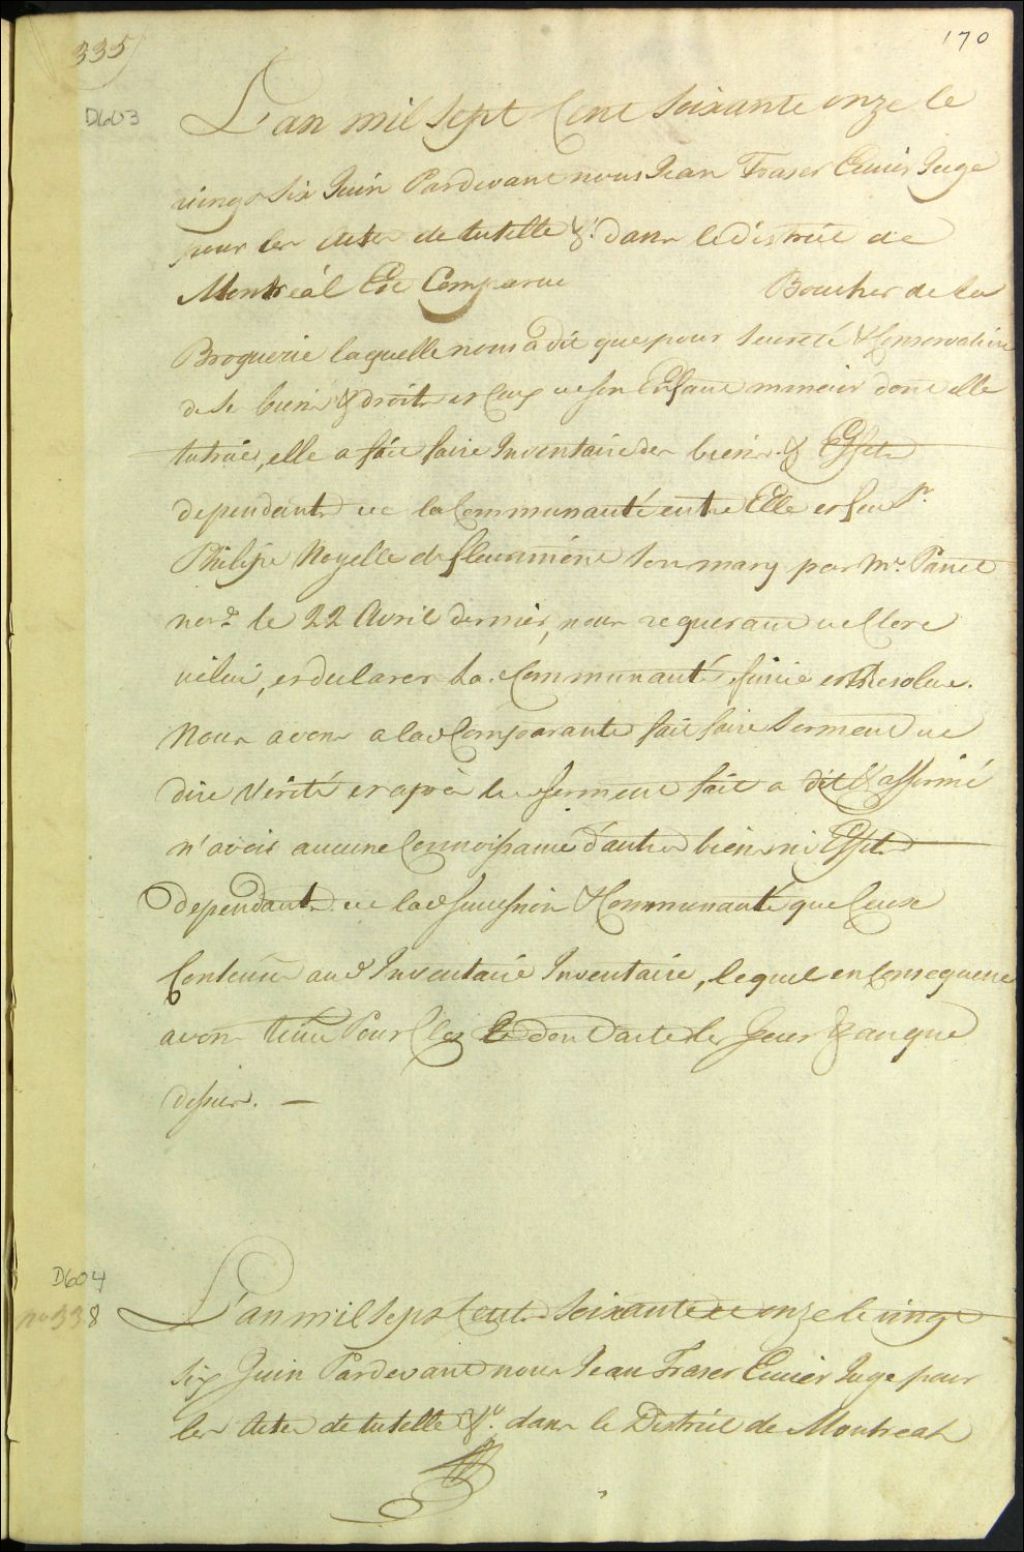 335
170
D603
L'an mil sept Cent Soixante onze le
vingt Six Juin Pardevant nous Jean Fraser Ecuier Juge
pour les Actes de tutelle &c. dans le district de
Montréal Est Comparue Boucher de la
Broquerie laquelle nous a dit que pour Sureté & Conservation
de Se biens & droits et Ceux de son Enfant mineur dont elle
tutrice, elle a fait faire Inventaire des biens & Effets
dependants de la Communauté entre Elle et feu Sr.
Philipe Noyelle de fleurimone Son mary par Me. Panet
nore. le 22 Avril dernier, nous requerant de Clore
icelui, et declarer la Communauté finie et Resolue.
Nous avons a lad Comparante fait faire Serment de
dire Vérité et après le serment fait a dit & affirmé
n'avoir aucune Connoissance d'autres biens ni Effets
dependants de lad Succession & Communauté que Ceux
Contenus aud Inventaire Inventaire, lequel en Consequence
avons tenu Pour Clos dont acte les Jour & an que
dessus. —
D604
no 338
L'an mil Sept Cent Soixante et onze le vingt
Six Juin Pardevant nous Jean Fraser Ecuier Juge pour
les Actes de tutelle &c. dans le District de Montreal